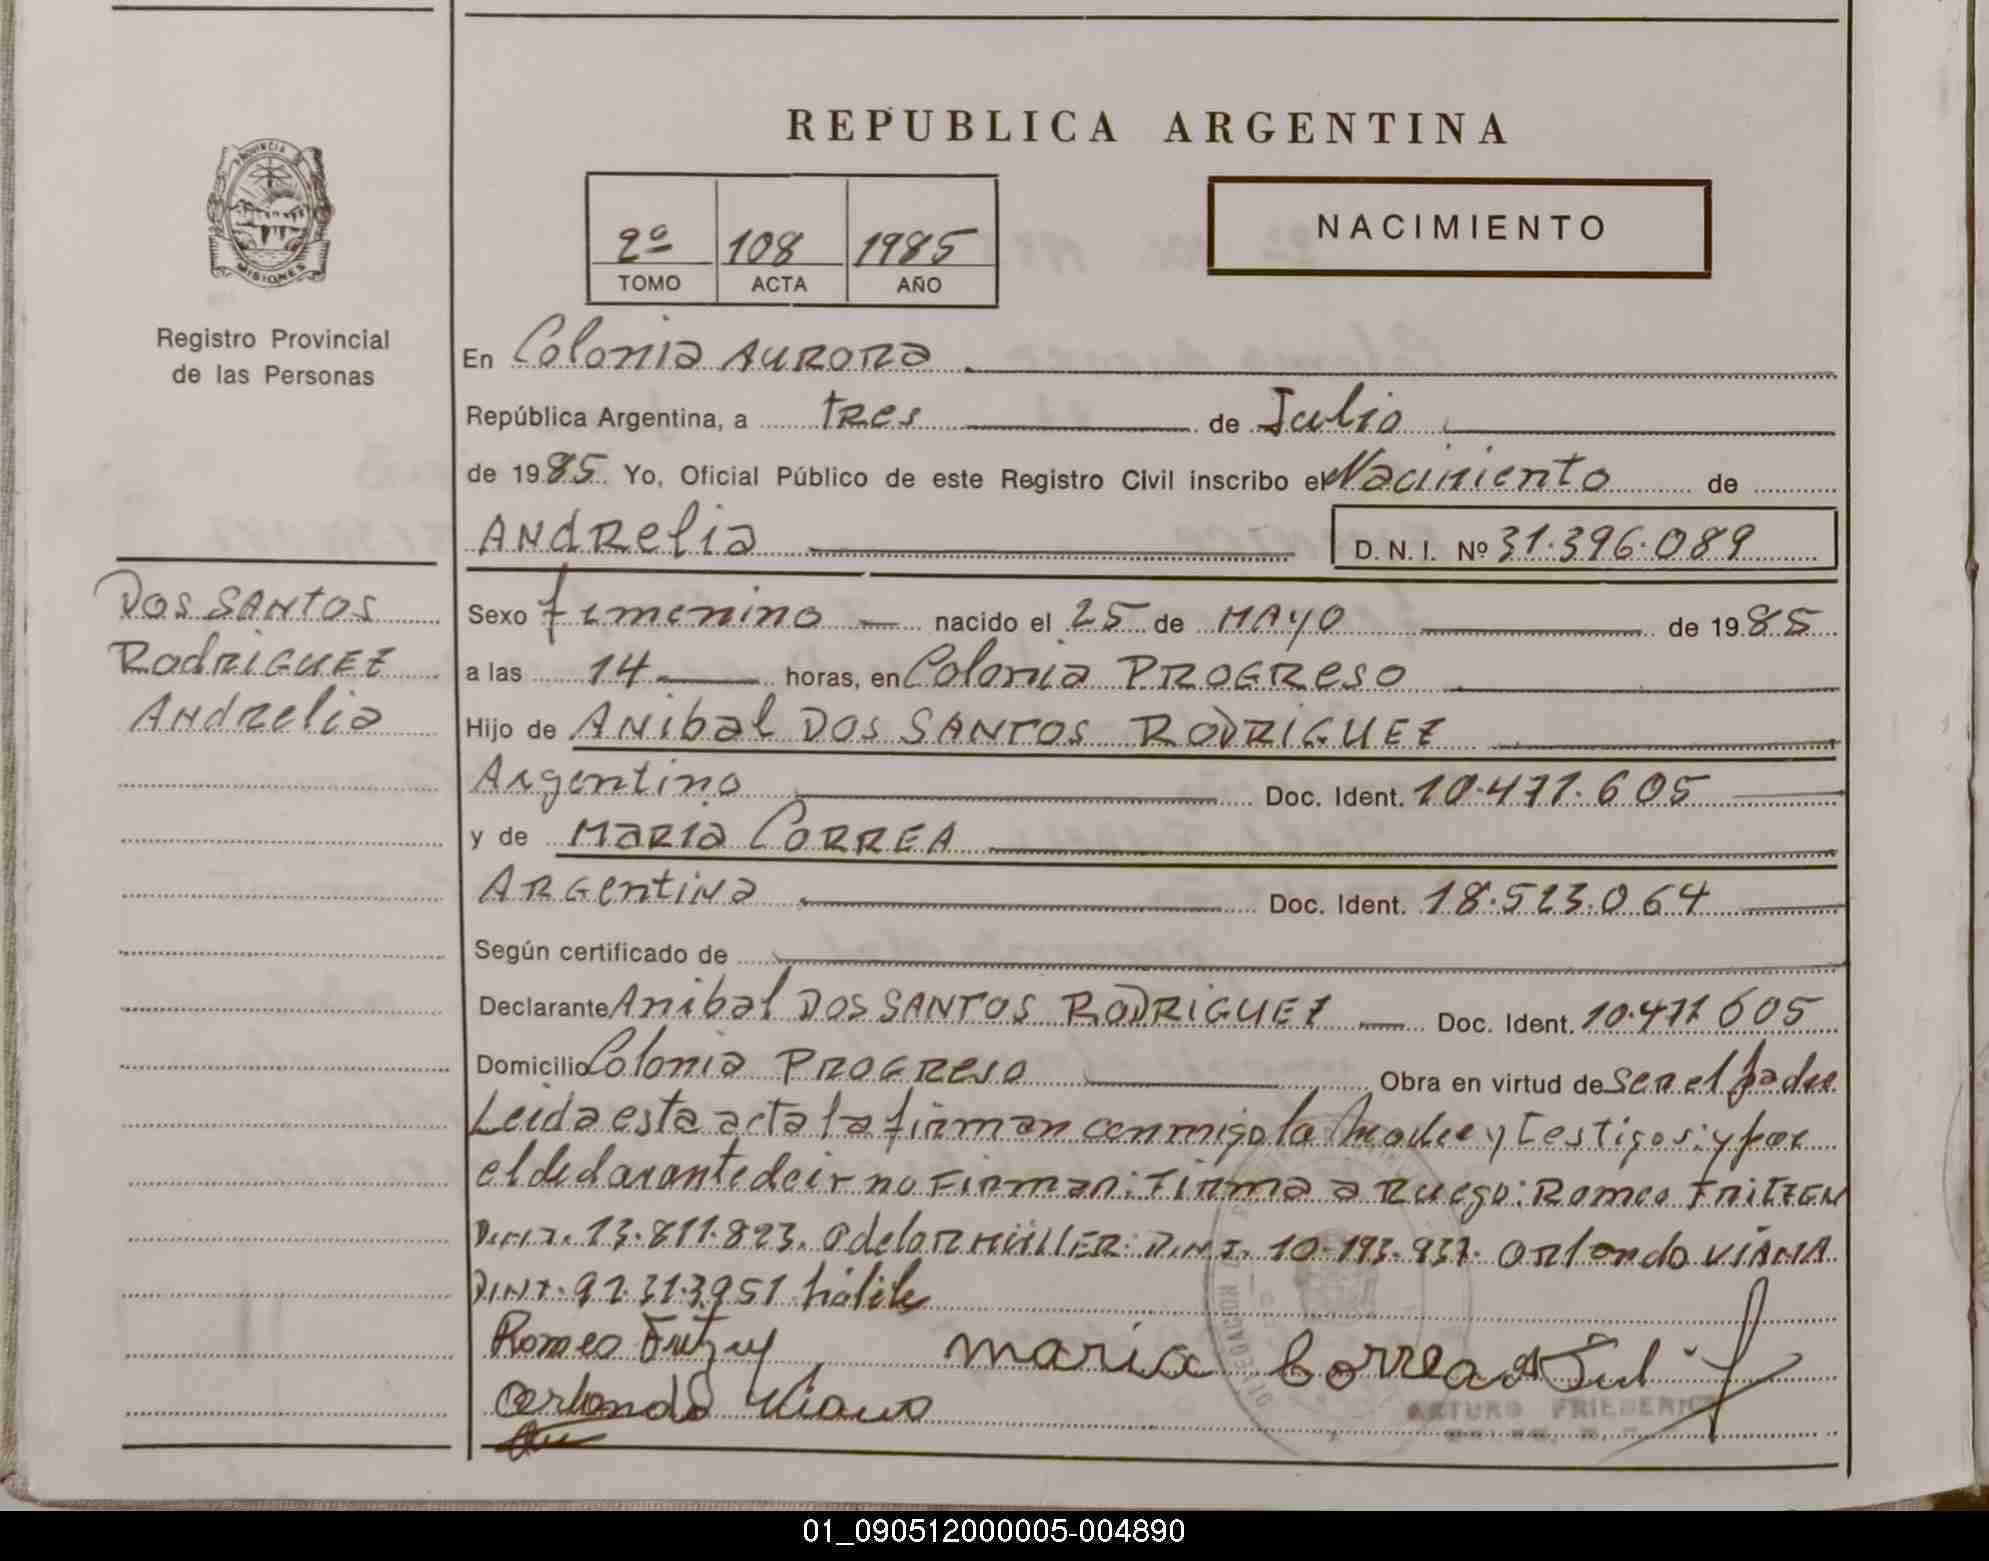 REPUBLICA ARGENTINA
PROVINCIA
MISIONES
Registro Provincial
de las Personas
2º 108 1985
TOMO ACTA AÑO
NACIMIENTO
En Colonia AURORA
República Argentina, a tres de Julio
de 1985 Yo, Oficial Público de este Registro Civil inscribo el Nacimiento de
ANdRelia D. N. I. Nº 31.396.089
DOS SANTOS
RodRIGUEZ
ANdRelia
Sexo femenino nacido el 25 de MAYO de 1985
a las 14 horas, en Colonia PROGReso
Hijo de ANibal DOS SANTOS RODRIGUEZ
Argentino Doc. Ident. 10.471.605
y de MaRia CORREA
ARGentiNa Doc. Ident. 18.523.064
Según certificado de
Declarante Anibal DOS SANTOS RODRIGUEZ Doc. Ident. 10.471.605
Domicilio Colonia PROGReso Obra en virtud de ser el padre
Leida esta acta la firman conmigo la madre y testigos: y por
el declarante decir no Firmar: Firma a Ruego: Romeo FRITZEN
D.N.I. 13.811.823. OdeloR MÜLLER: D.N.I. 10.193.937. Orlando VIANA
D.N.I. 92.313.951
Romeo Fritzen maria Correa
Orlando Viana
DELEGACION
ARTURO FRIEDERICH
01_090512000005-004890